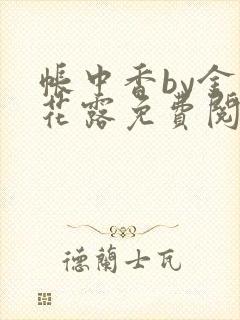 帳中香by金
花露免費閱
德蘭士瓦